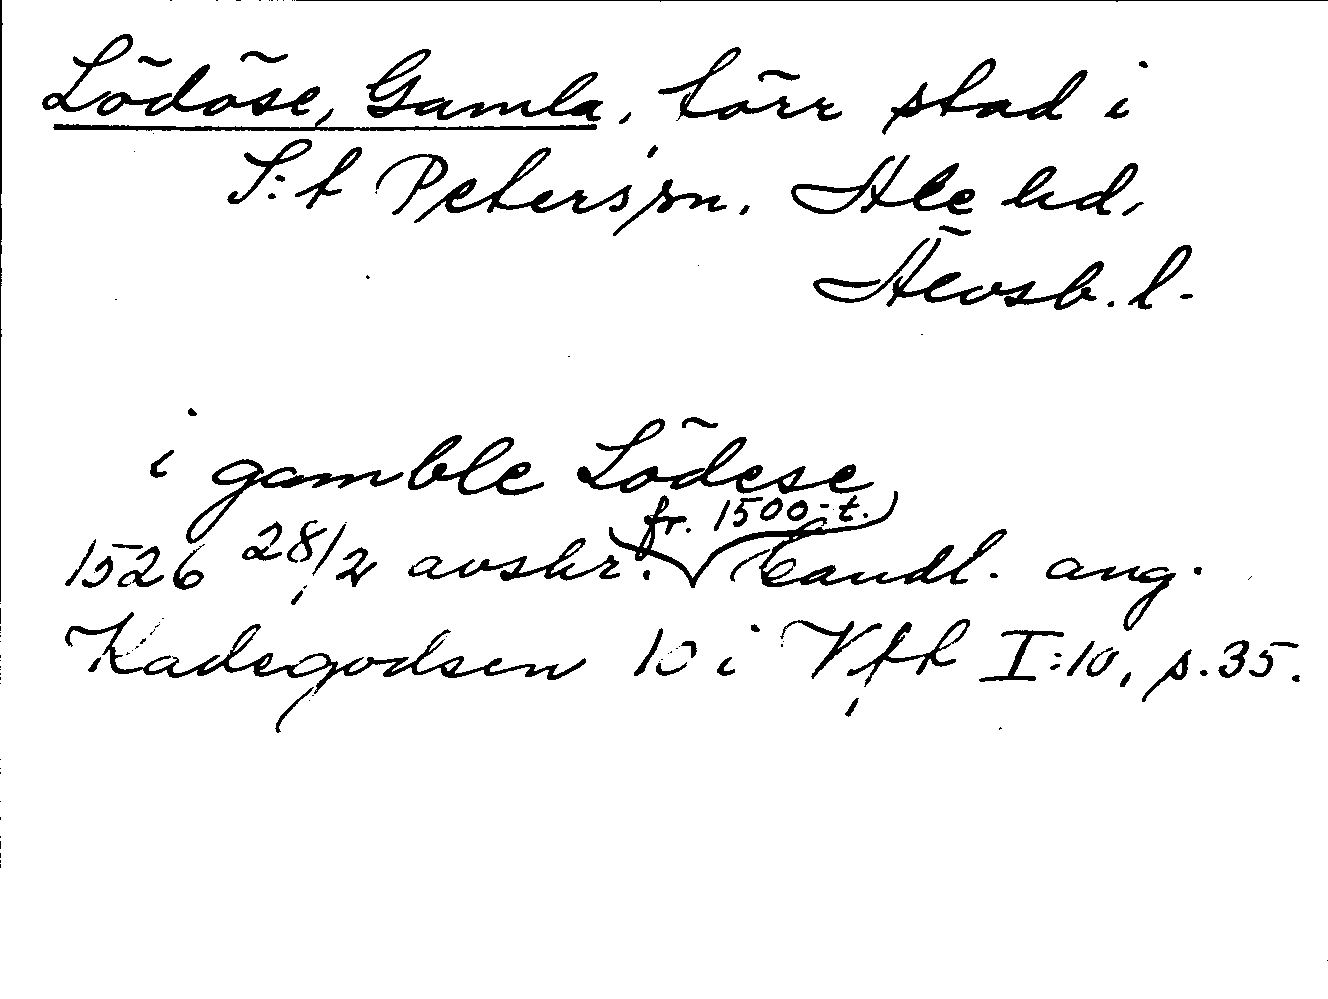 Lödöse, Gamla, förr stad i
S:t Peters sn. Ale hd,
Älvsb. l.
i gamble Lödese
fr. 1500-t.
1526 28/2 avskr. Handl. ang.
Kadegodsen 10 i Vfh I:10, s. 35.